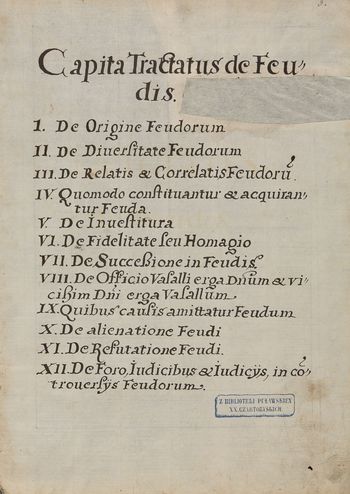 Capita Tractatus de Feu„
dis.
I. De Origine Feudorum
II. De Diuersitate Feudorum
III. De Relatis & Correlatis Feudorũ
IV. Quomodo constituantur & acquiran„
tur Feuda.
V. De Inuestitura
VI. De Fidelitate seu Homagio
VII. De Successione in Feudis
VIII. De Officio Vasalli erga Dnum & vi„
cissim Dni erga Vasallum.
IX. Quibus causis amittatur Feudum
X. De alienatione Feudi
XI. De Refutatione Feudi.
XII. De Foro, Iudicibus & Iudicijs, in cõ„
trouersijs Feudorum.
Z BIBLIOTEKI PUŁAWSKIEY
XX. CZARTORYSKICH.